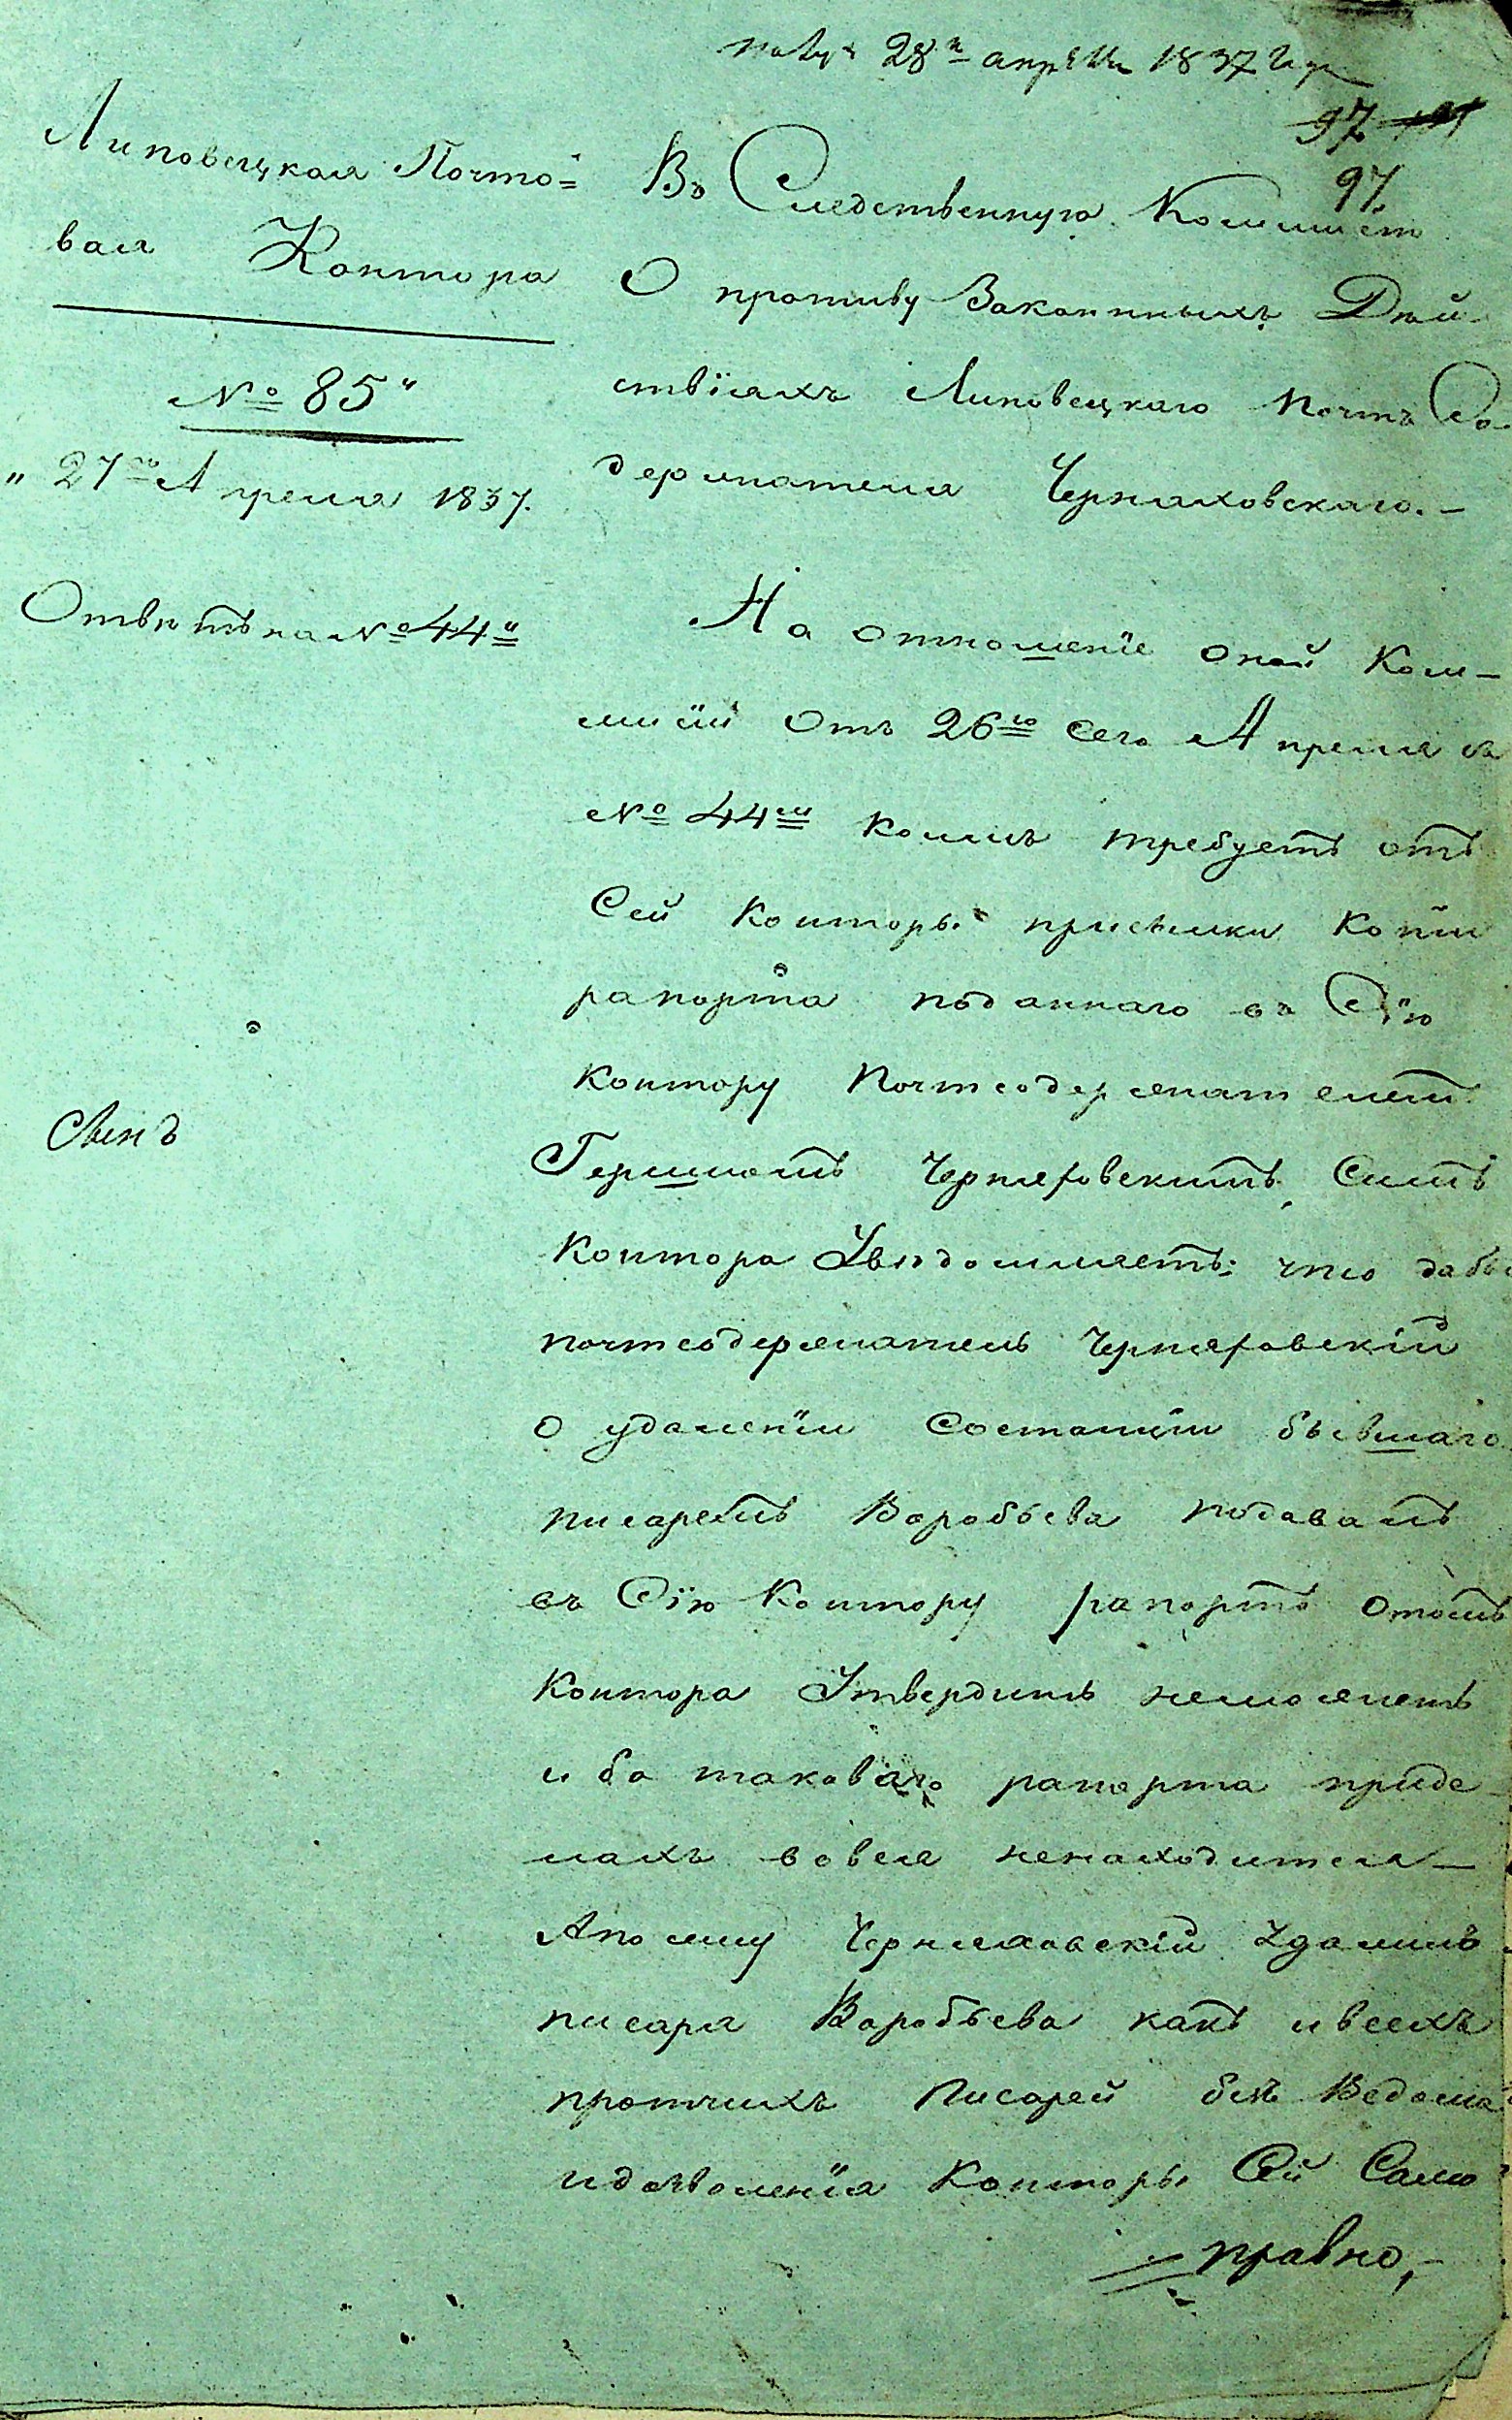 Получ. 28го апреля 1837 года
97
97.
Липовецкая Почто=
вая Контора
№ 85"
" 27го Апреля 1837.
Ответъ на № 44й
Въ Следственную Коммисію
О противу Законныхъ Дей-
ствіяхъ Липовецкаго Почтъ Со-
держателя Черняховскаго. —
На отношеніе оной Ком-
мисіи Отъ 26го Сего Апреля за
№ 44м коимъ требуетъ отъ
Сей Конторы присылки Копіи
рапорта поданнаго въ Сію
Контору Почтсодержателемъ
Гершкомъ Черняховскимъ, Симъ
Контора Уведомляетъ: что дабы
почтсодержатель Черняховскій
о удаленіи Состанціи бывшаго
писаремъ Воробьева подавалъ
въ Сію Контору рапортъ отомъ
Контора Утвердить неможетъ
ибо таковаго рапорта приде-
лахъ вовся ненаходится —
Апотому Черняховскій Удалилъ
писаря Воробьева какъ ивсехъ
протчихъ Писарей безъ Ведома
идозволенія Конторы Сей Само
правно, —